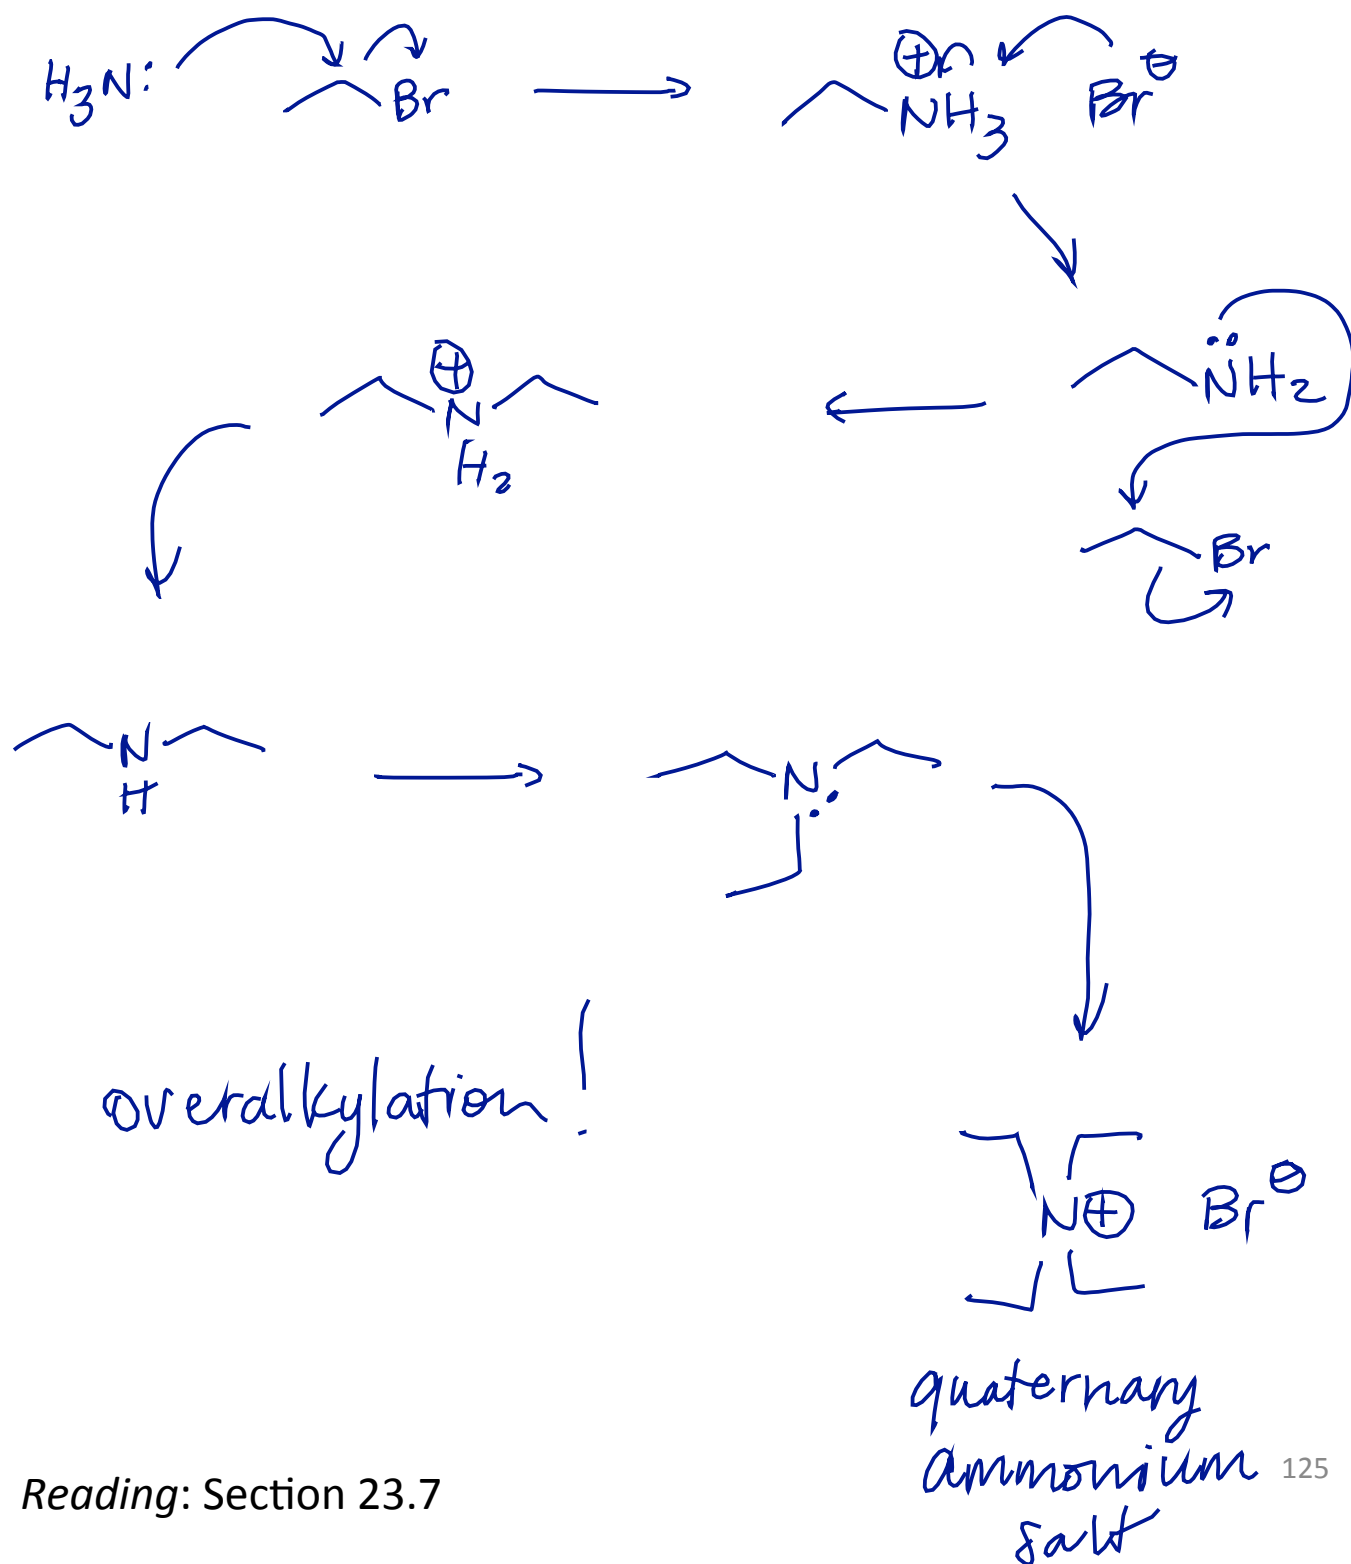 H₃N: Br ⊕NH₃ Br⊖
⊕N H₂ N̈H₂
Br
N H N:
overalkylation!
N⊕ Br⊖
quaternary
ammonium
salt
125
Reading: Section 23.7